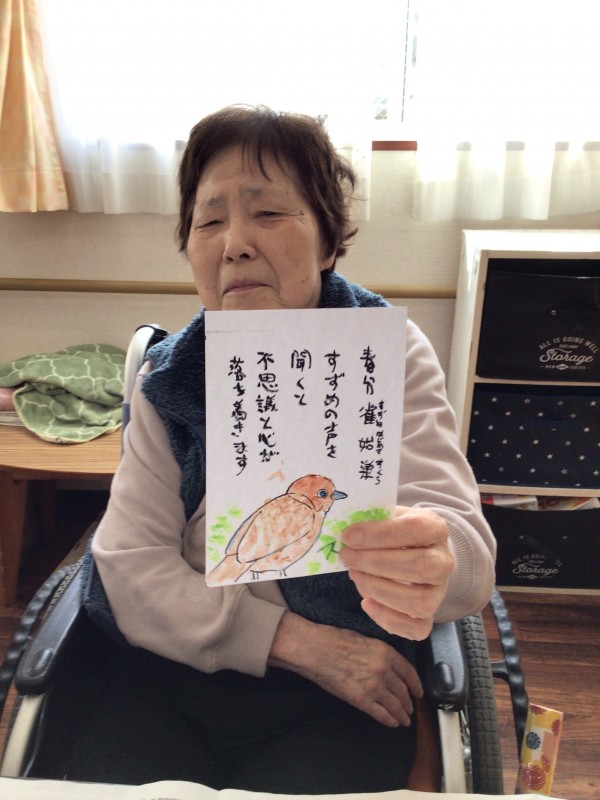 春分 雀始巣
すずめ はじめて すくう
すずめの声を
聞くと
不思議と心が
落ち着きます
ALL IS GOING WELL
Storage
ALL IS GOING WELL
Storage